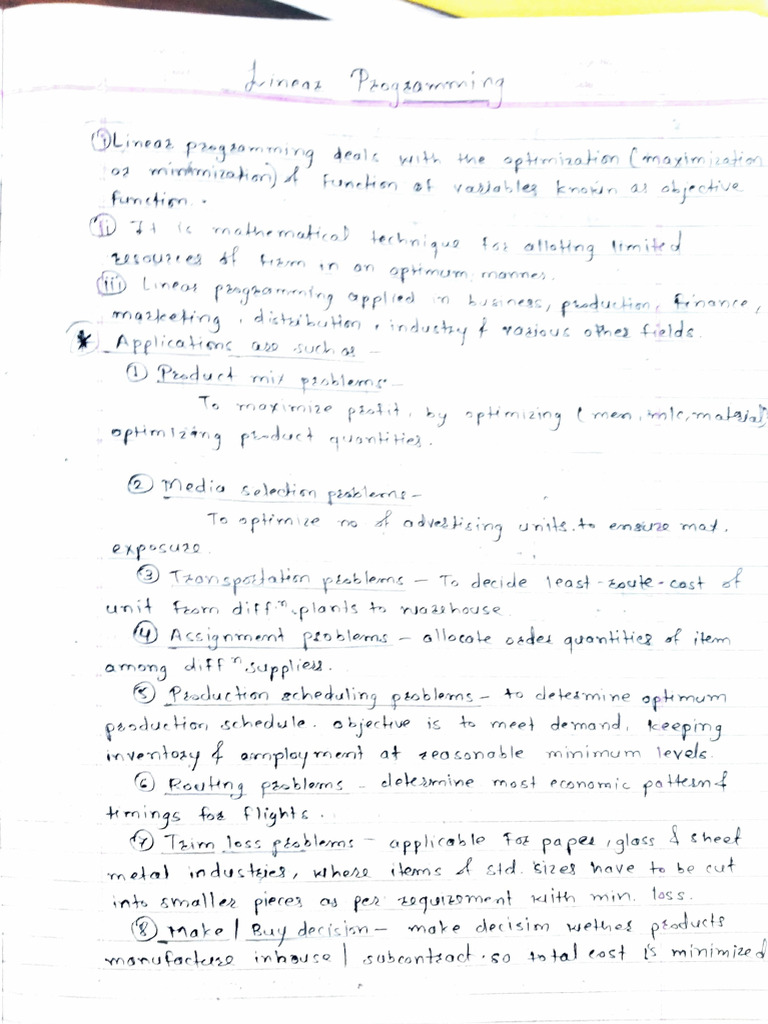 Linear Programming
(i) Linear programming deals with the optimization (maximization
or minimization) of function of variables known as objective
function.
(ii) It is mathematical technique for alloting limited
resources of firm in an optimum manner.
(iii) Linear programming applied in business, production, finance,
marketing, distribution, industry & various other fields.
* Applications are such as -
① Product mix problems -
To maximize profit, by optimizing (men, m/c, material)
optimizing product quantities.
② Media selection problems -
To optimize no of advertising units to ensure max.
exposure.
③ Transportation problems - To decide least-route-cost of
unit from diffⁿ. plants to warehouse
④ Assignment problems - allocate order quantities of item
among diffⁿ. suppliers.
⑤ Production scheduling problems - to determine optimum
production schedule. objective is to meet demand, keeping
inventory & employment at reasonable minimum levels.
⑥ Routing problems - determine most economic pattern &
timings for flights.
⑦ Trim loss problems - applicable for paper, glass & sheet
metal industries, where items of std. sizes have to be cut
into smaller pieces as per requirement with min. loss.
⑧ Make / Buy decision - make decision wether products
manufacture inhouse / subcontract. so total cost is minimized